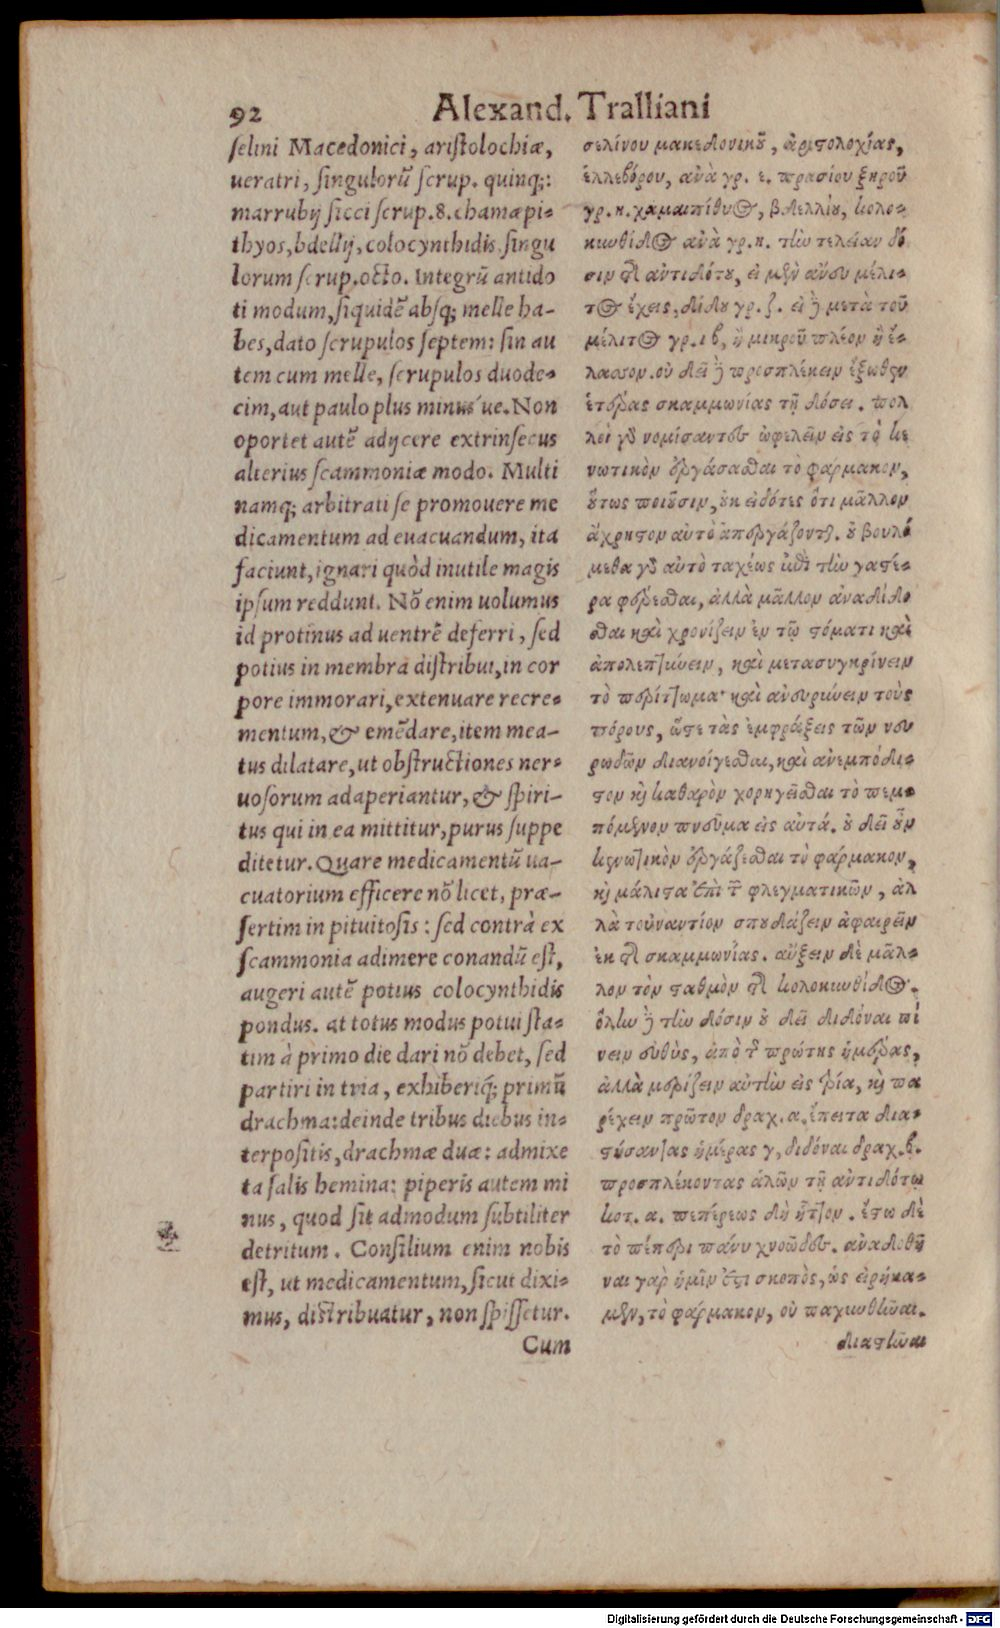 92
Alexand. Tralliani
ſelini Macedonici, ariſtolochiæ,
ueratri, ſingulorũ ſcrup. quinq;:
marrubij ſicci ſcrup. 8. chamæpi-
thyos, bdellij, colocynthidis, ſingu
lorum ſcrup. octo. Integrũ antido
ti modum, ſiquidẽ abſq; melle ha-
bes, dato ſcrupulos ſeptem: ſin au
tem cum melle, ſcrupulos duode-
cim, aut paulo plus minus´ue. Non
oportet autẽ adijcere extrinſecus
alterius ſcammoniæ modo. Multi
namq; arbitrati ſe promouere me
dicamentum ad euacuandum, ita
faciunt, ignari quòd inutile magis
ipſum reddunt. Nõ enim uolumus
id protinus ad uentrẽ deferri, ſed
potius in membra diſtribui, in cor
pore immorari, extenuare recre-
mentum, & emẽdare, item mea-
tus dilatare, ut obſtructiones ner-
uoſorum adaperiantur, & ſpiri-
tus qui in ea mittitur, purus ſuppe
ditetur. Quare medicamentũ ua-
cuatorium efficere nõ licet, præ-
ſertim in pituitoſis: ſed contrà ex
ſcammonia adimere conandũ eſt,
augeri autẽ potius colocynthidis
pondus. at totus modus potui ſta-
tim à primo die dari nõ debet, ſed
partiri in tria, exhiberiq́; primũ
drachma: deinde tribus diebus in-
terpoſitis, drachmæ duæ: admixe
ta ſalis hemina: piperis autem mi
nus, quod ſit admodum ſubtiliter
detritum. Conſilium enim nobis
eſt, ut medicamentum, ſicut dixi-
mus, diſtribuatur, non ſpiſſetur.
Cum
σελίνου μακεδονικοῦ, ἀριστολοχίας,
ἑλλεβόρου, ἀνὰ γρ. ε. πρασίου ξηροῦ
γρ. η. χαμαιπίθυος, βδελλίου, κολο-
κυνθίδος ἀνὰ γρ. η. τὴν τελείαν δό
σιν τῆς ἀντιδότου, εἰ μὲν ἄνευ μέλι-
τος ἔχεις, δίδου γρ. ζ. εἰ δὲ μετὰ τοῦ
μέλιτος γρ. ιβ, ἢ μικροῦ πλέον ἢ ἔ-
λασσον. οὐ δεῖ δὲ προσπλέκειν ἔξωθεν
ἑτέρας σκαμμωνίας τῇ δόσει. πολ
λοὶ γὰρ νομίσαντες ὠφελεῖν εἰς τὸ κε
νωτικὸν ἐργάσασθαι τὸ φάρμακον,
οὕτως ποιοῦσιν, οὐκ εἰδότες ὅτι μᾶλλον
ἄχρηστον αὐτὸ ἀπεργάζονται. οὐ βουλό
μεθα γὰρ αὐτὸ ταχέως κατὰ τὴν γαστέ-
ρα φέρεσθαι, ἀλλὰ μᾶλλον ἀναδίδο
σθαι καὶ χρονίζειν ἐν τῷ στόματι καὶ
ἀπολεπτύνειν, καὶ μετασυγκρίνειν
τὸ περίττωμα· καὶ ἀνευρύνειν τοὺς
πόρους, ὥστε τὰς ἐμφράξεις τῶν νευ
ρωδῶν διανοίγεσθαι, καὶ ἀνεμπόδι-
στον καὶ καθαρὸν χορηγεῖσθαι τὸ πεμ-
πόμενον πνεῦμα εἰς αὐτά. οὐ δεῖ οὖν
κενωτικὸν ἐργάζεσθαι τὸ φάρμακον,
καὶ μάλιστα ἐπὶ τῶν φλεγματικῶν, ἀλ
λὰ τοὐναντίον σπουδάζειν ἀφαιρεῖν
ἐκ τῆς σκαμμωνίας. αὔξειν δὲ μᾶλ-
λον τὸν σταθμὸν τῆς κολοκυνθίδος.
ὅλην δὲ τὴν δόσιν οὐ δεῖ διδόναι πί
νειν εὐθὺς, ἀπὸ τῆς πρώτης ἡμέρας,
ἀλλὰ μερίζειν αὐτὴν εἰς τρία, καὶ πα
ρέχειν πρῶτον δραχ. α. ἔπειτα δια-
στήσαντας ἡμέρας γ, διδόναι δραχ. β.
προσπλέκοντας ἁλῶν τῇ ἀντιδότῳ
κοτ. α. πεπέρεως δὴ ἧττον. ἔστω δὲ
τὸ πέπερι πάνυ χνοῶδες. ἀναδοθῆ
ναι γὰρ ἡμῖν ἐστι σκοπὸς, ὡς εἰρήκα-
μεν, τὸ φάρμακον, οὐ παχυνθῆναι.
διαστῆναι
Digitalisierung gefördert durch die Deutsche Forschungsgemeinschaft - DFG